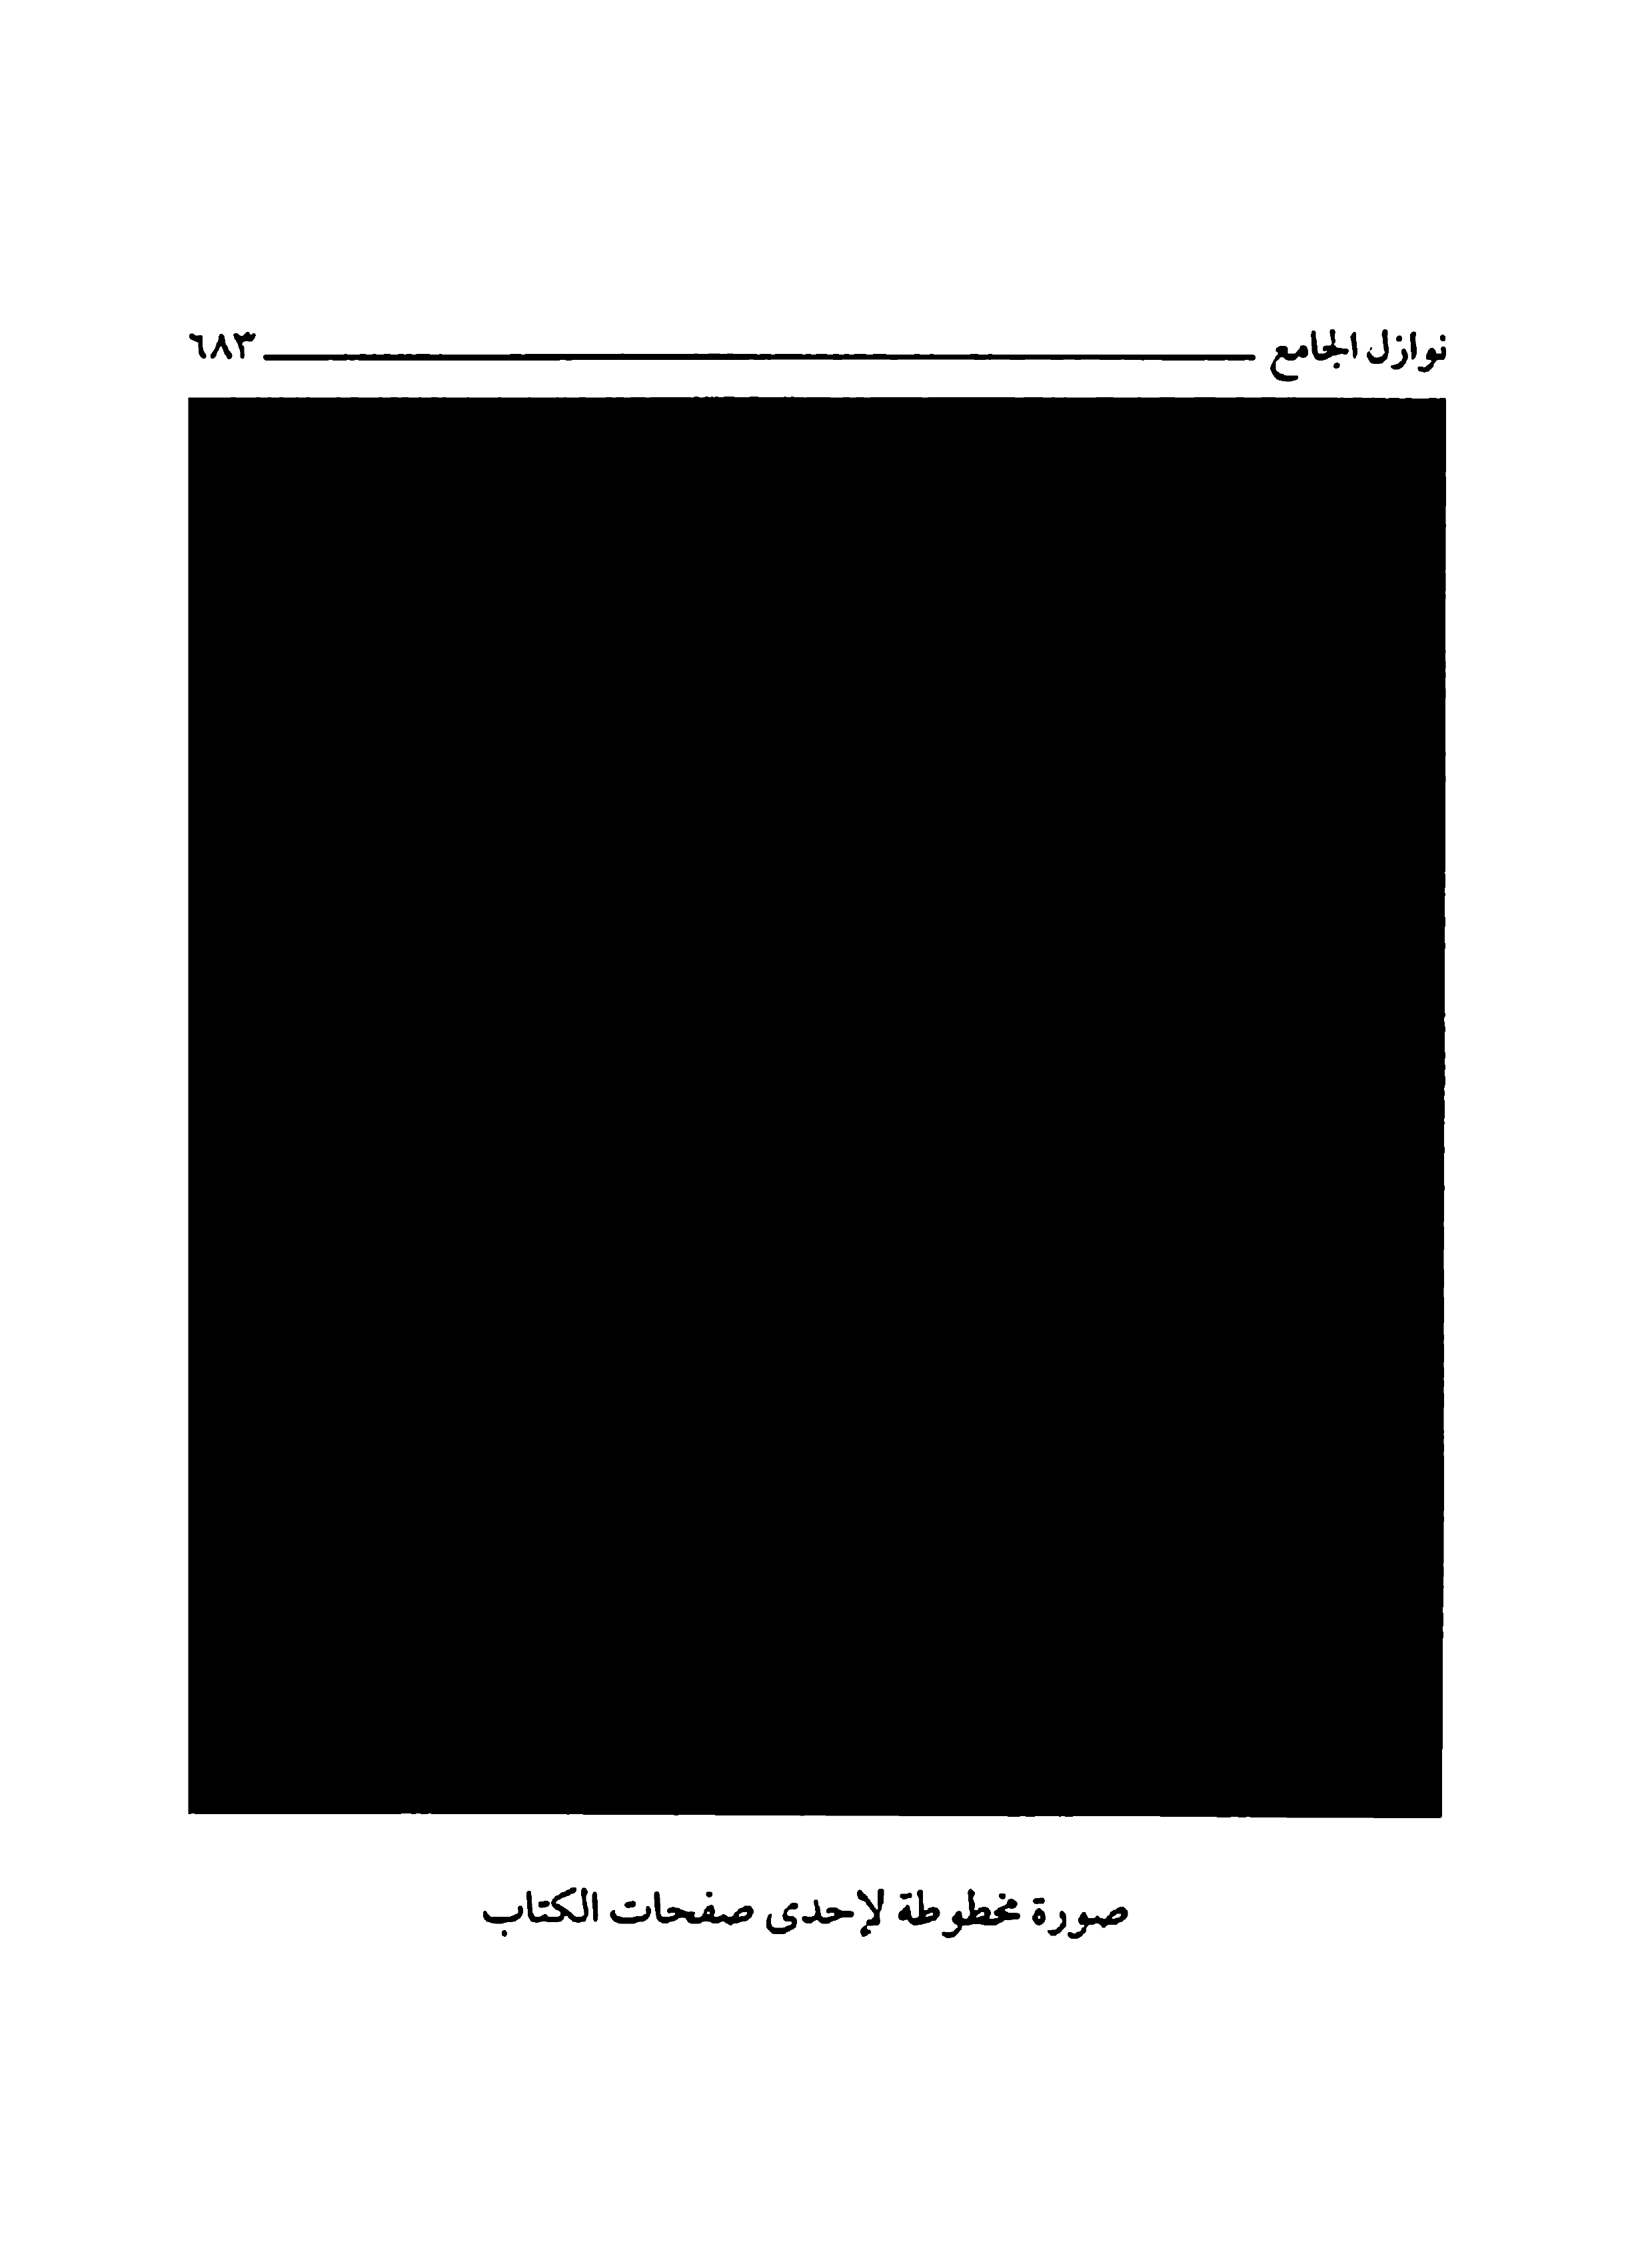 نوازل الجامع ٦٨٣
صورة مخطوطة لإحدى صفحات الكتاب